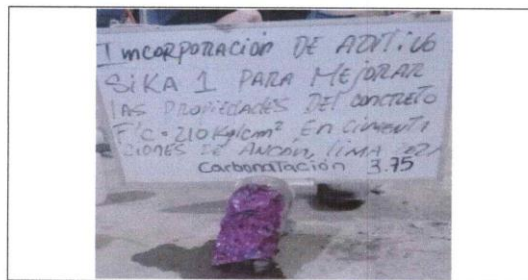 Incorporación DE ADITIVO
SiKA 1 PARA MEjORAR
LAS PROPIEDADES DEL CONCRETO
F'c=210 Kg/cm² EN CIMENTA
CIONES DE ANCÓN, LIMA
Carbonatación 3.75